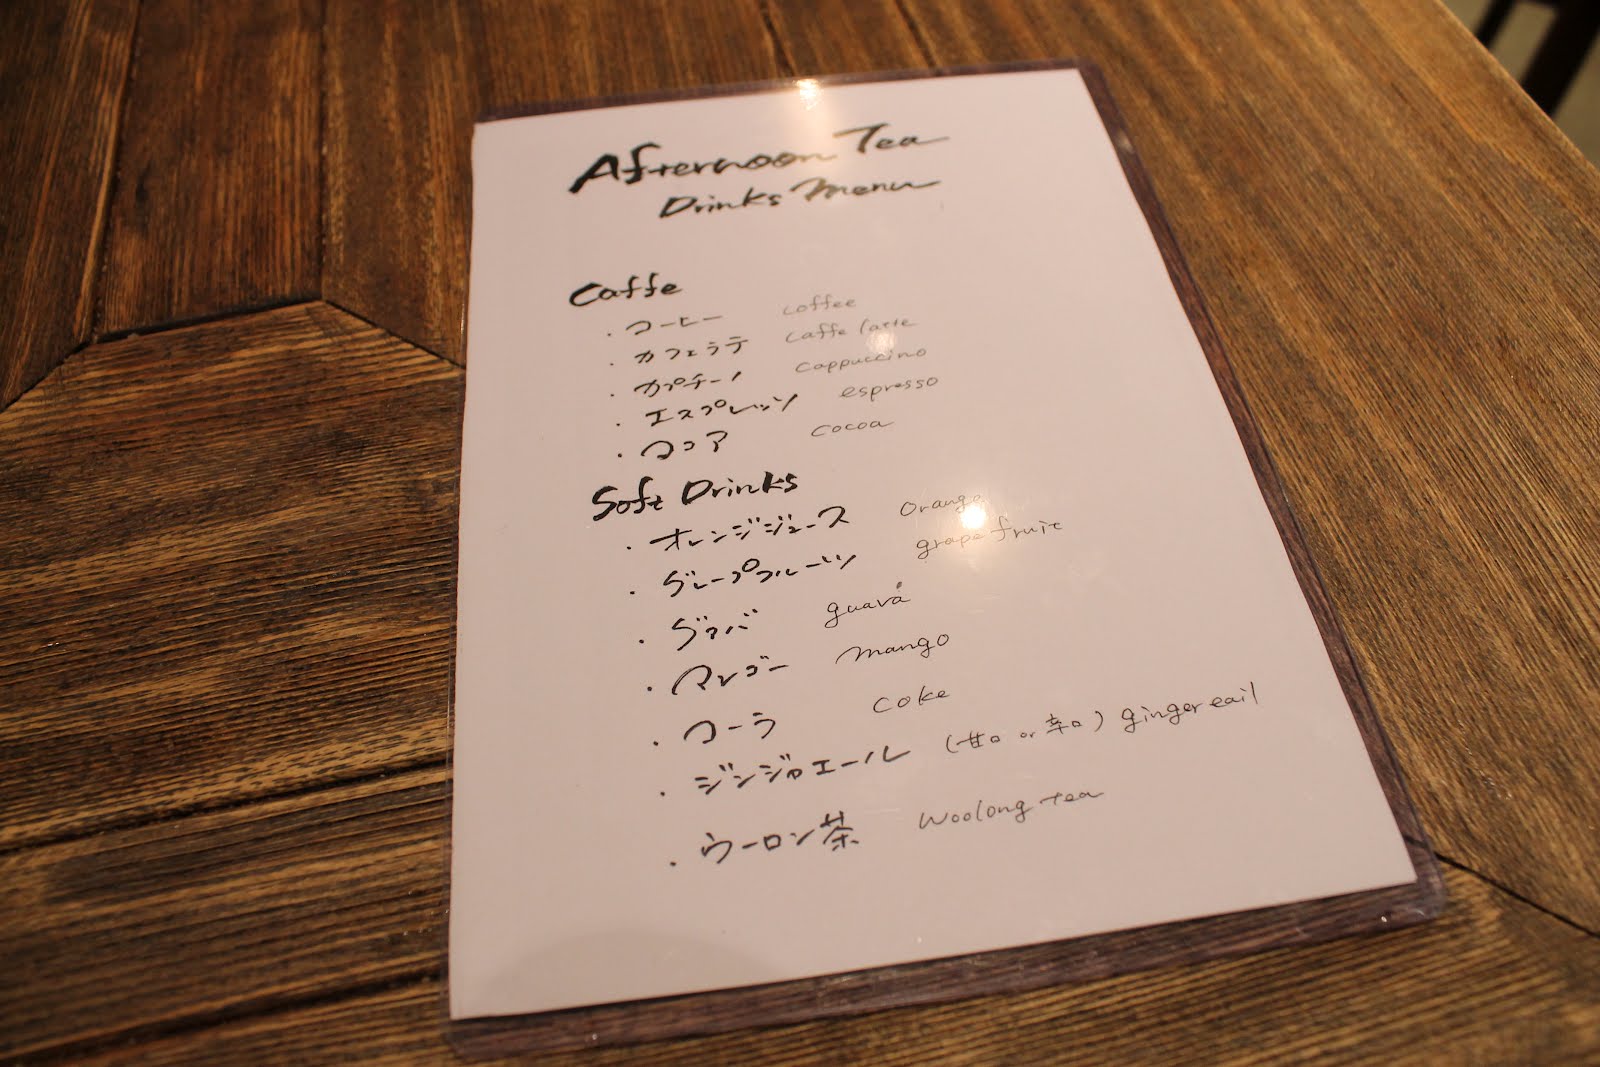 Afternoon Tea
Drinks Menu
Caffe
・コーヒー coffee
・カフェラテ caffe latte
・カプチーノ cappuccino
・エスプレッソ espresso
・ココア cocoa
Soft Drinks
・オレンジジュース orange
・グレープフルーツ grapefruit
・グァバ guava
・マンゴー mango
・コーラ coke
・ジンジャエール (甘口 or 辛口) ginger eail
・ウーロン茶 Woolong tea